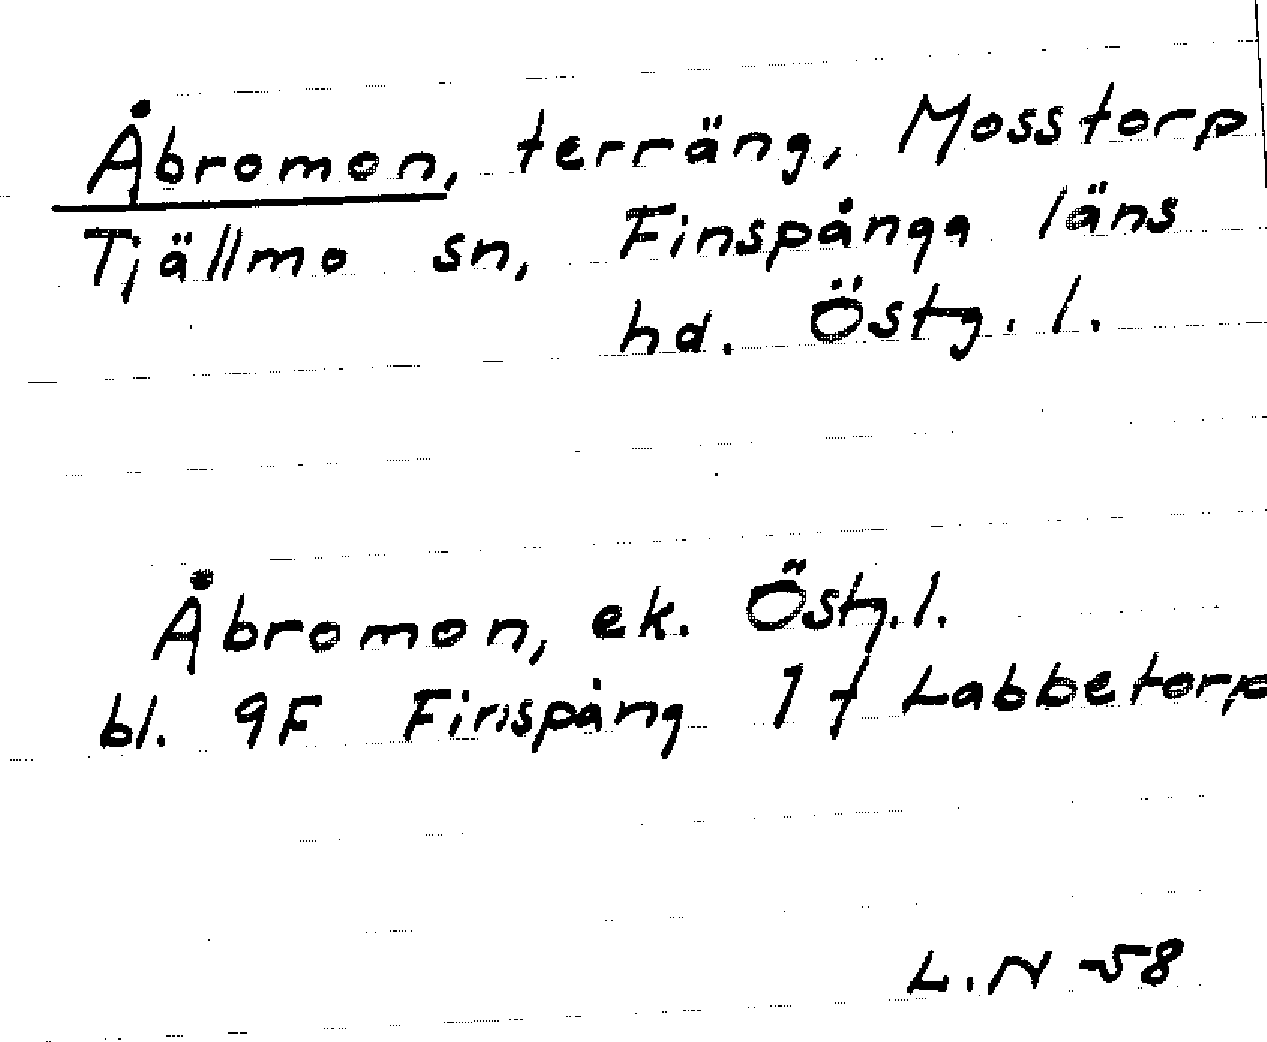 Åbromon, terräng, Mosstorp
Tjällmo sn, Finspånga läns
hd. Östg. l.
Åbromon, ek. Östg. l.
bl. 9F Finspång 1 f Labbetorp
L. N -58